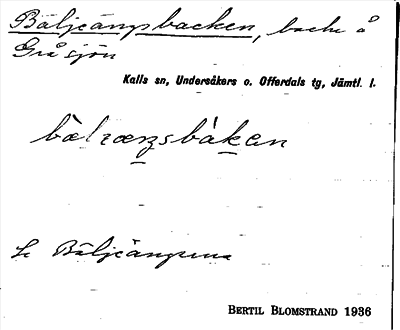 Bäljeängsbacken, backe å
Gråsjön
Kalls sn, Undersåkers o. Offerdals tg, Jämtl. l.
Se Bäljeängarna
BERTIL BLOMSTRAND 1936